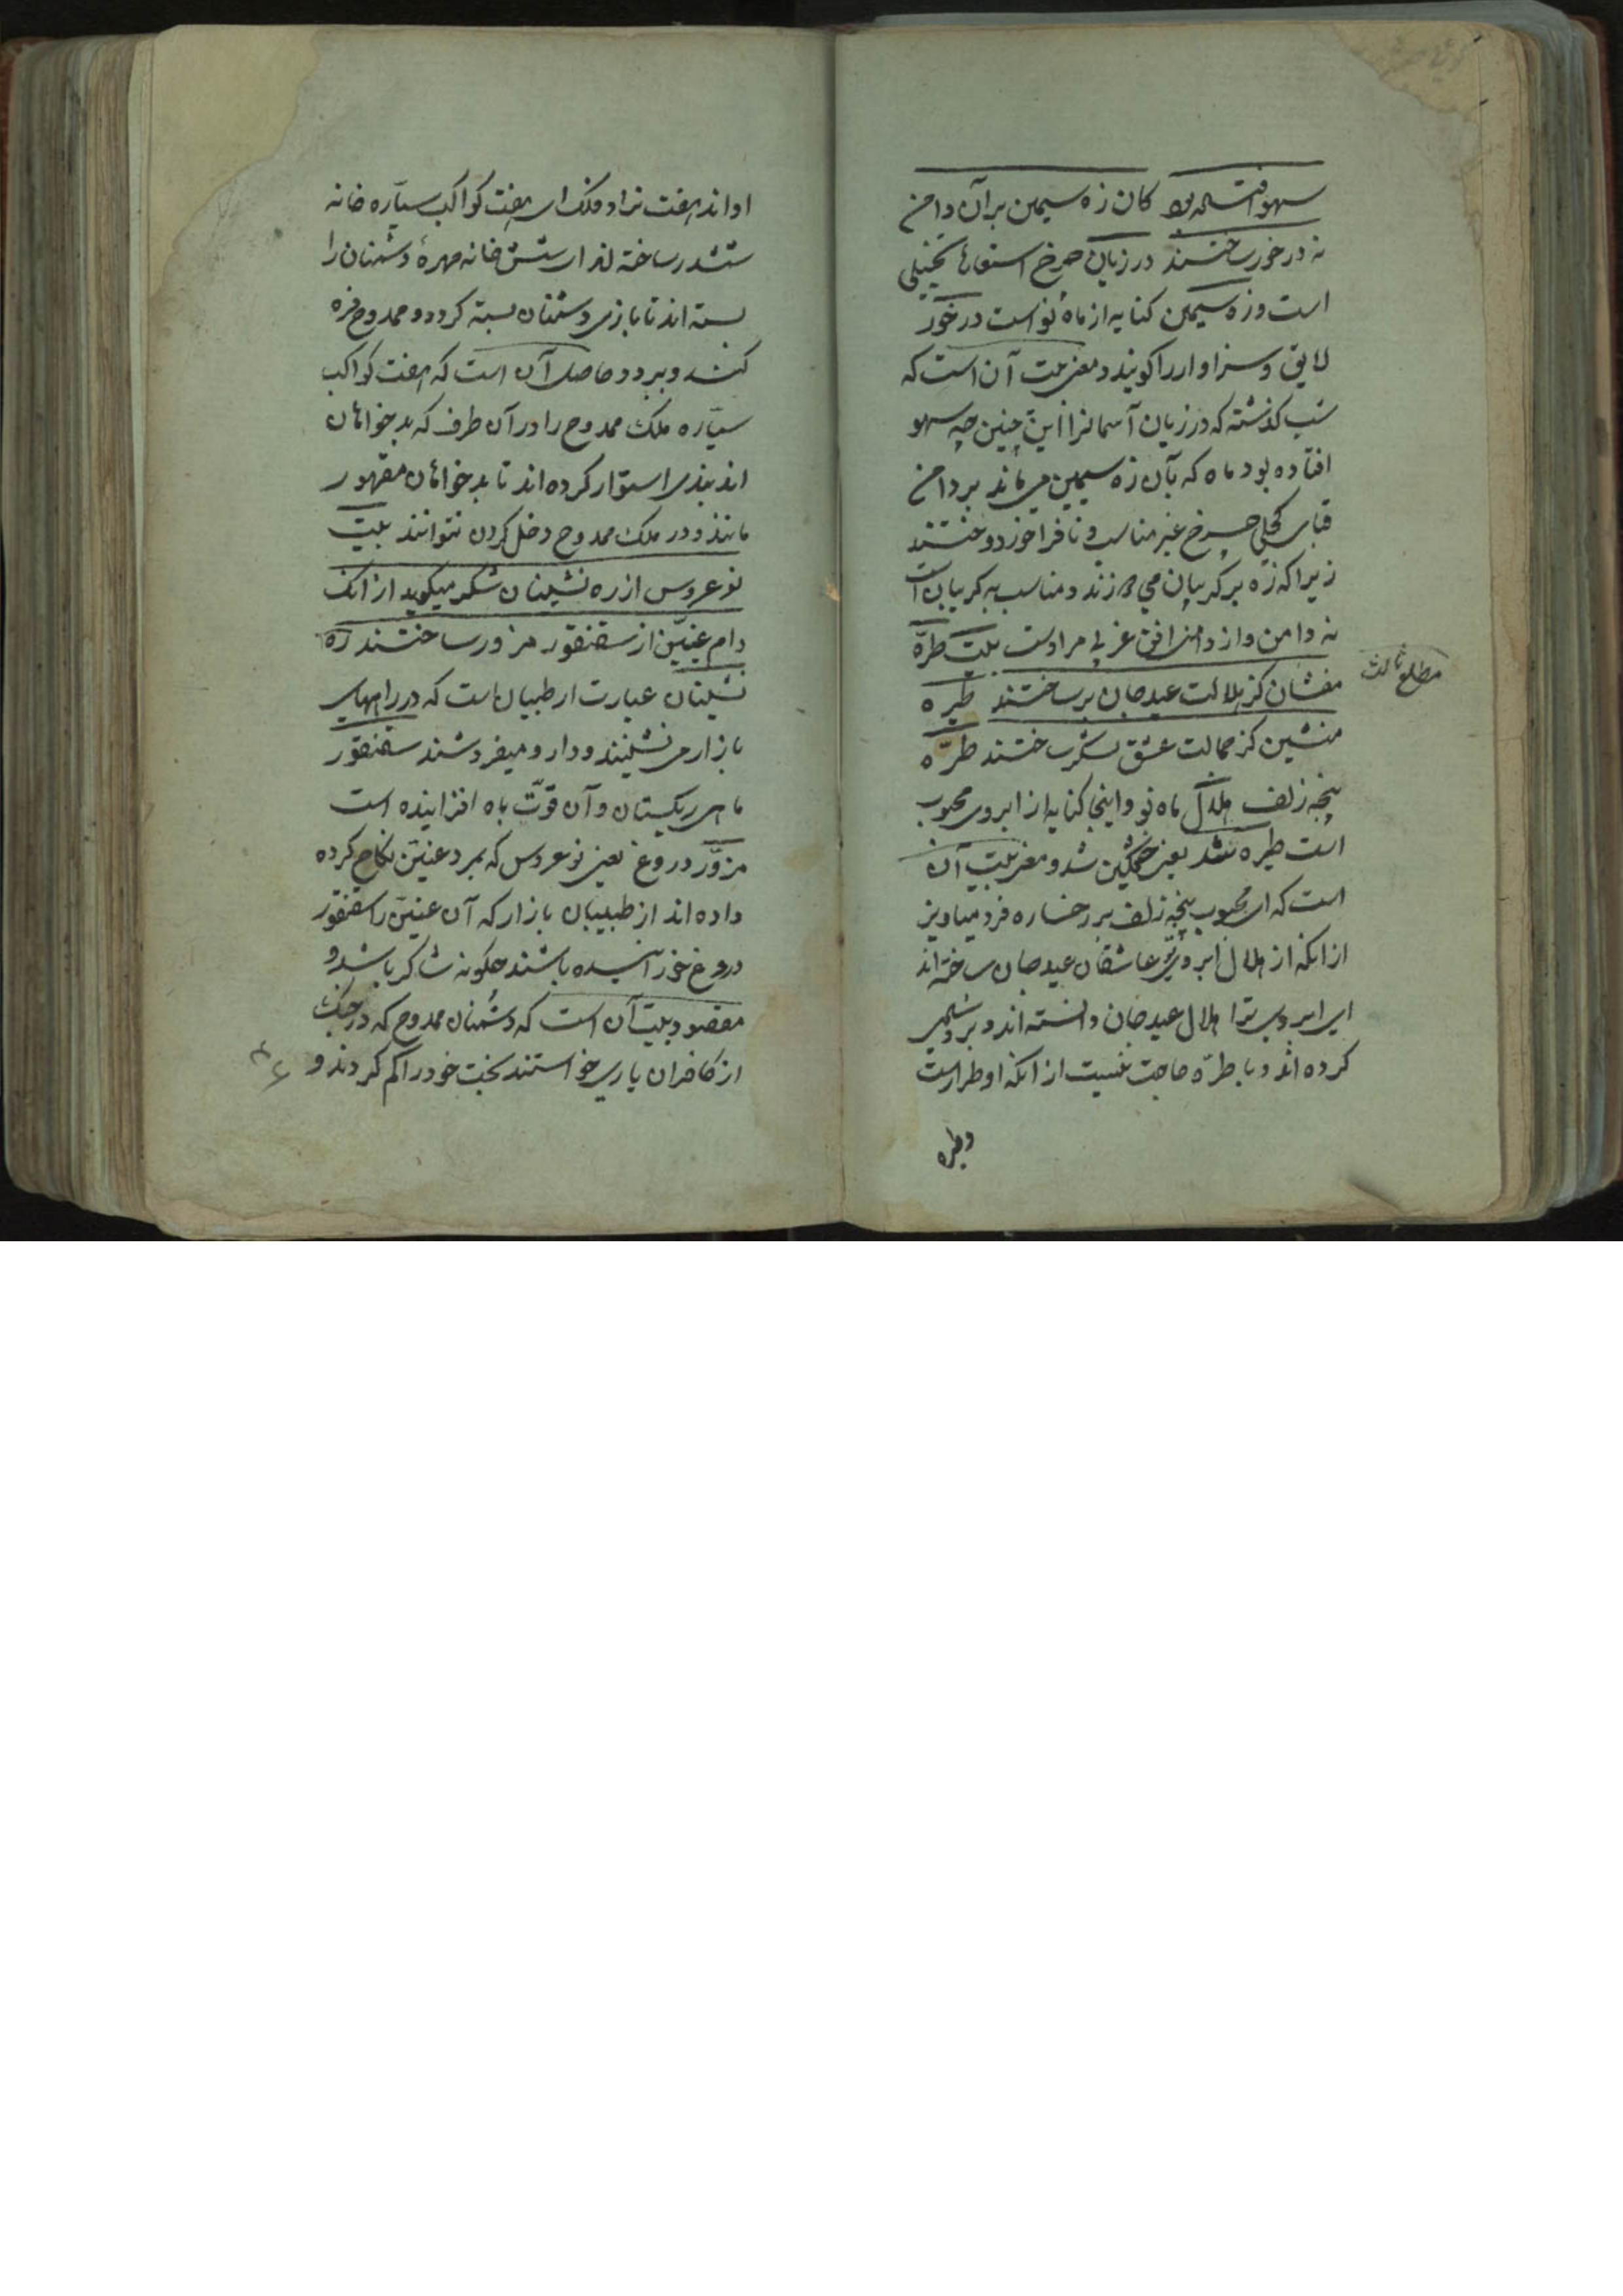 سهو افتاده بود کان زه سیمین بر آن دامن
نه در خور ساختند درزیان چرخ استعارهٔ تخییلی
است و زه سیمین کنایه از ماه نو است در خور
لایق و سزاوار را کویند و معنی بیت آن است که
شب کذشته که درزیان آسمانرا این چنین چه سهو
افتاده بود ماه که بآن زه سیمین می ماند بر دامن
قبای کحلی چرخ غیر مناسب و نا فراخور دوختند
زیرا که زه بر کریبان می زند و مناسب به کریبان است
نه دامن و از دامن افق غربی مراد است بیت طرّه
مفشان کز هلالت عید جان بر ساختند طیره
منشین کز جمالت عشق لشکر ساختند طرّه
پنجه زلف هلال ماه نو و اینجا کنایه از ابروی محبوب
است طیره نشد یعنی خشمکین شد و معنی بیت آن
است که ای محبوب پنجه زلف بر رخساره فرو میاویز
از انکه از هلال ابروی تو عاشقان عید جان ساخته اند
ای ابروی ترا هلال عید جان دانسته اند و برو
کرده اند و با طرّه حاجت نیست از انکه او طرار است
وطره
مطلع ثالث
او اند هفت نراد فلک ای هفت کواکب سیّاره خانه
ششدر ساخته اند ای شش خانه مهرهٔ دشمنان را
بسته اند تا بازی دشمنان بسته کردد و ممدوح فره
کند و برد و حاصل آن است که هفت کواکب
سیّاره ملک ممدوح را در آن طرف که بدخواهان
اند بندی استوار کرده اند تا بدخواهان مقهور
مانند و در ملک ممدوح دخل کردن نتوانند بیت
نو عروس از ره نشینان شکر میکوید از انک
دام عنّین از سقنقور مزور ساختند ره
نشینان عبارت از طبیبان است که در راههای
بازار می نشینند و دارو میفروشند سقنقور
ماهی ریکستان و آن قوّت باه افزاینده است
مزوّر دروغ یعنی نو عروس که بمرد عنین نکاح کرده
داده اند از طبیبان بازار که آن عنین را سقنقور
دروغ خورانیده باشند چکونه شاکر باشد و
مقصود بیت آن است که دشمنان ممدوح که در جنک
از کافران یاری خواستند بخت خود را کم کردند و